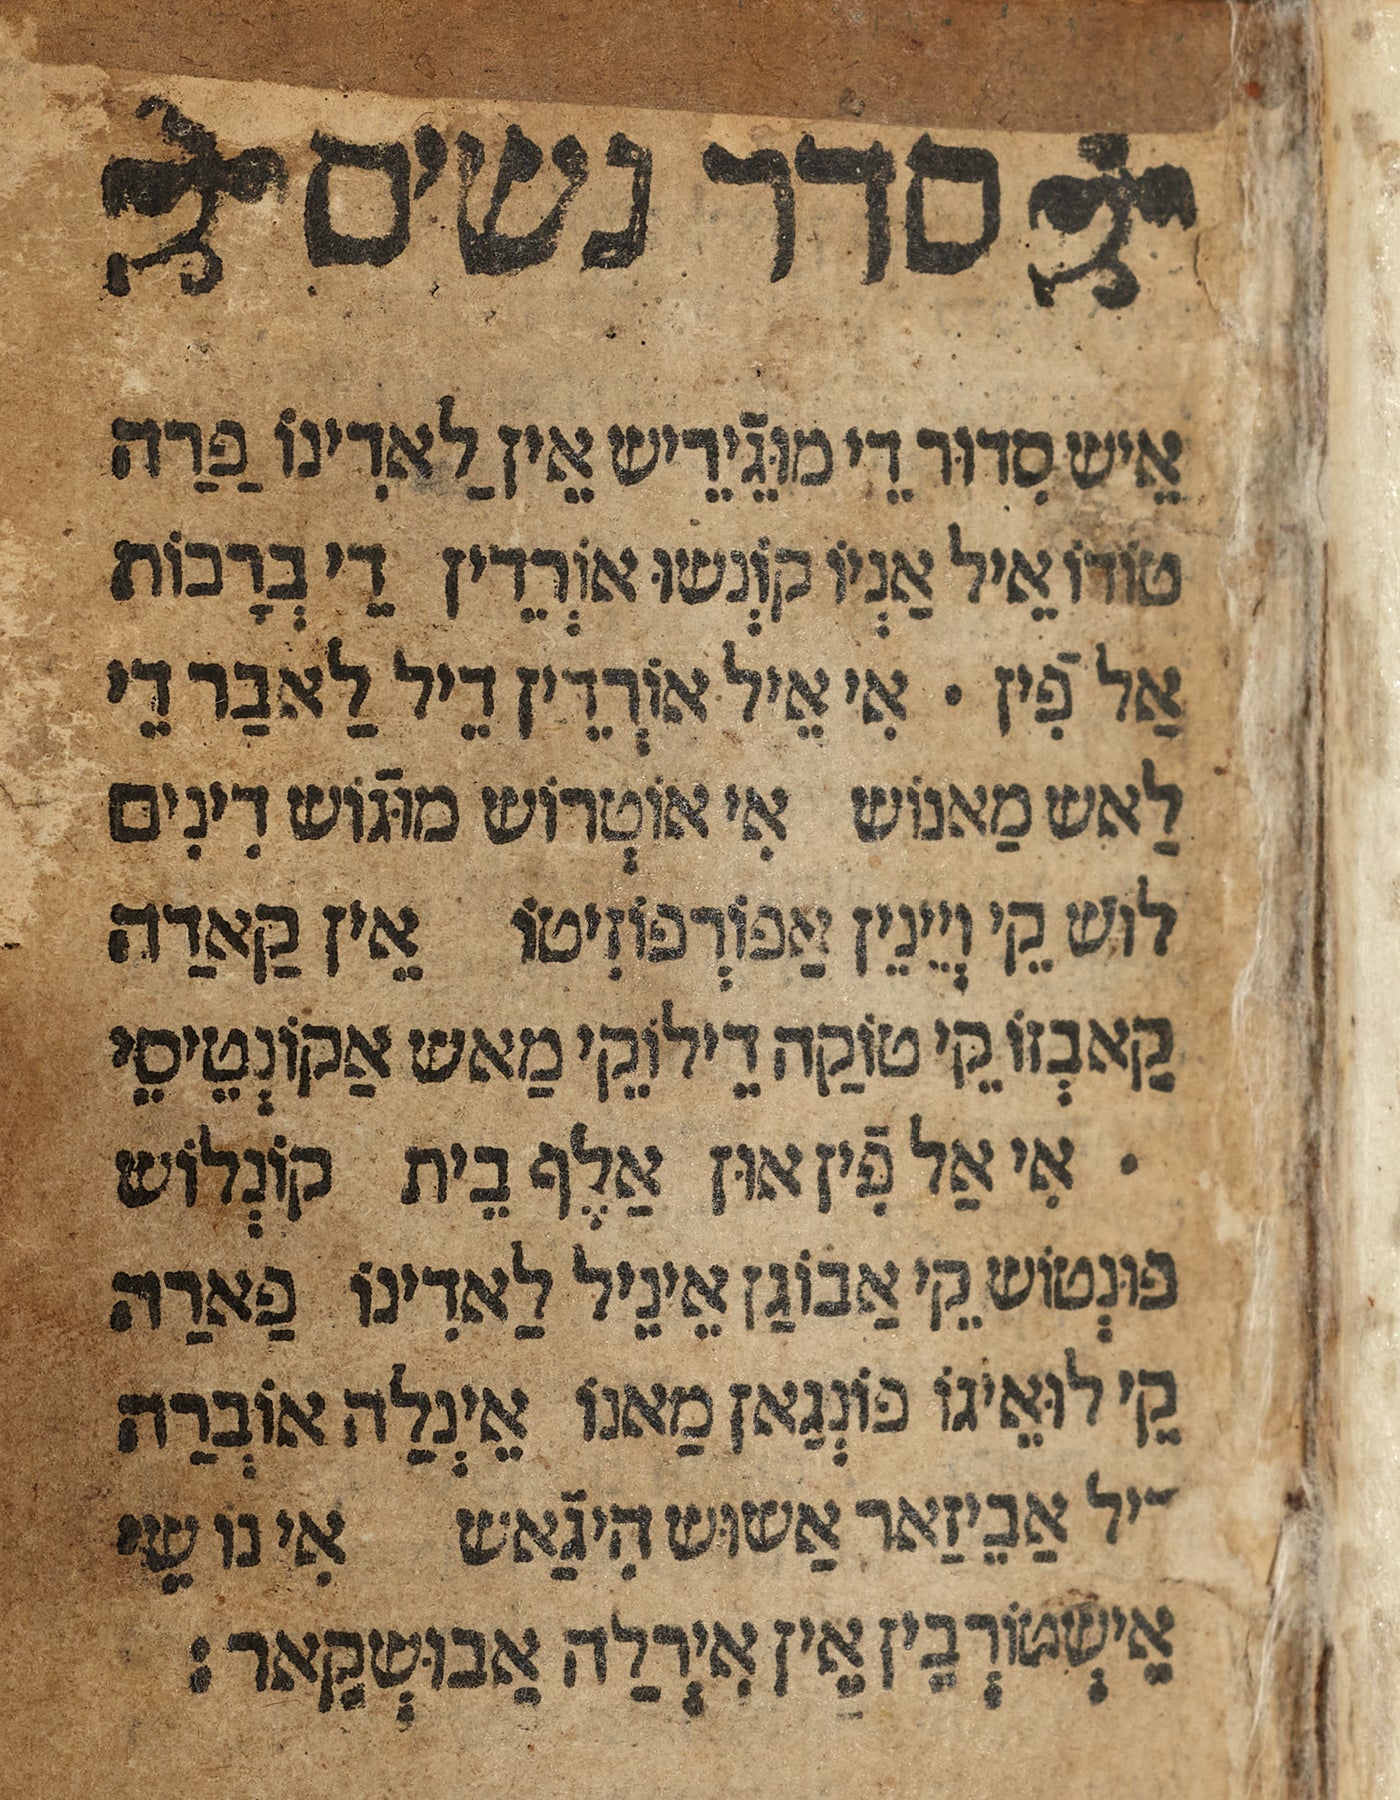 סדר נשים
אֵיש סִדוּר דֵי מוּגֵֿירֵיש אֵין לַאדִינוֹ פַּרַה
טוֹדוֹ אֵיל אַנְיוֹ קוֹנְשוּ אוֹרְדֵין דֵי בְּרָכוֹת
אַל פִֿין · אִי אֵיל אוֹרְדֵין דֵיל לַאבַר דֵי
לַאש מַאנוֹש אִי אוֹטְרוֹש מוּגֿוֹש דִינִים
לוש קֵי וְיֵינֵין אַפּוֹרְפּוֹזִיטוֹ אֵין קַאדַה
קַאבְזוֹ קֵי טוֹקַה דֵילוֹקֵי מַאש אַקוֹנְטֵיסֵי
· אִי אַל פִֿין אוּן אַלֶף בֵית קוֹנְלוֹש
פּוּנְטוֹש קֵי אַבוֹגַן אֵינֵיל לַאדִינוֹ פַּארַה
קֵי לוּאֵיגוֹ פּוֹנְגַאן מַאנוֹ אֵינְלַה אוֹבְרַה
דיל אַבֵיזַאר אַשוּש הִיגַֿאש אִי נו שֵי
אֵישְטוֹרְבֵין אֵין אִירְלַה אַבוּשְקַאר :